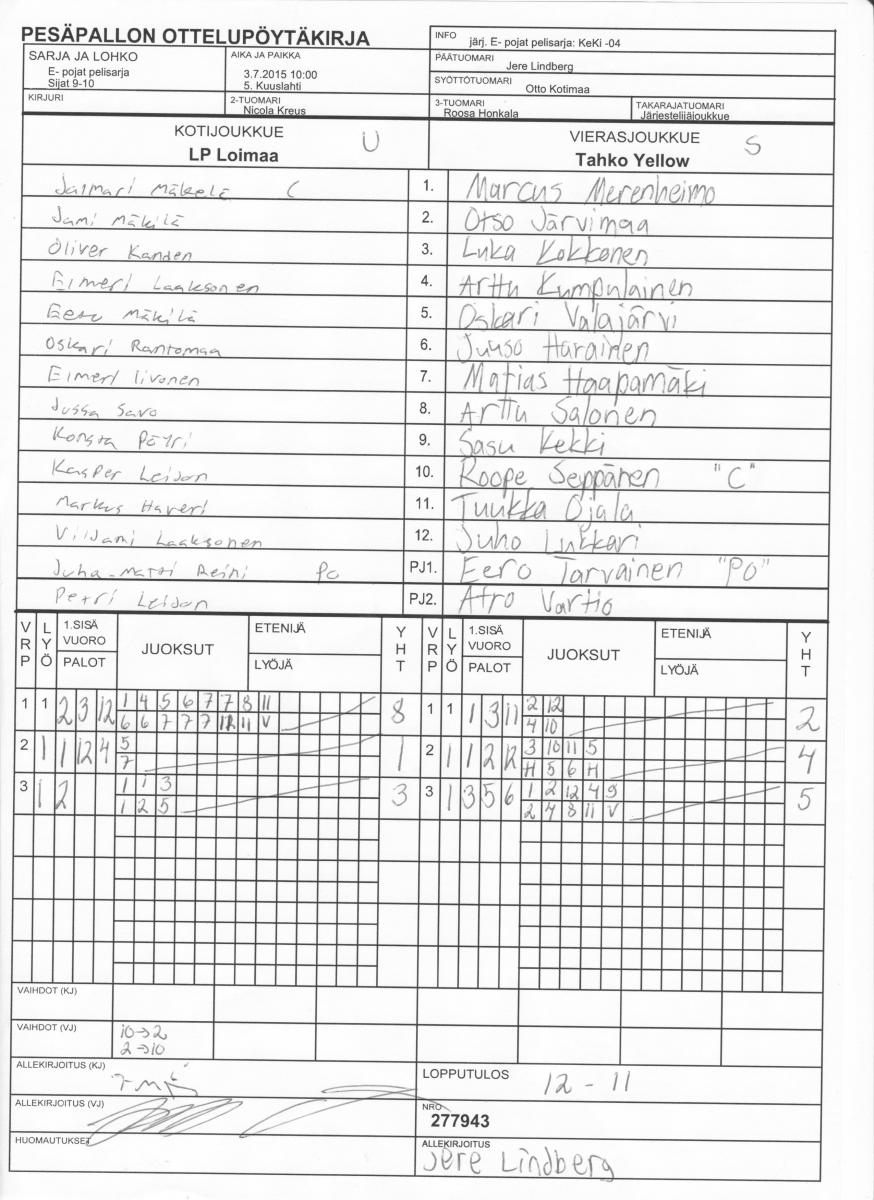 PESÄPALLON OTTELUPÖYTÄKIRJA
INFO järj. E- pojat pelisarja: KeKi -04
SARJA JA LOHKO
E- pojat pelisarja
Sijat 9-10
AIKA JA PAIKKA
3.7.2015 10:00
5. Kuuslahti
PÄÄTUOMARI
Jere Lindberg
SYÖTTÖTUOMARI
Otto Kotimaa
KIRJURI
2-TUOMARI
Nicola Kreus
3-TUOMARI
Roosa Honkala
TAKARAJATUOMARI
Järjestelijäjoukkue
KOTIJOUKKUE U
LP Loimaa
VIERASJOUKKUE S
Tahko Yellow
Jalmari Mäkelä C 1. Marcus Merenheimo
Jami Mäkilä 2. Otso Järvimaa
Oliver Kanden 3. Luka Kokkonen
Elmeri Laaksonen 4. Arttu Kumpulainen
Eetu Mäkilä 5. Oskari Valajärvi
Oskari Rantomaa 6. Juuso Harainen
Elmeri Iivonen 7. Matias Haapamäki
Jussa Savo 8. Arttu Salonen
Konsta Petri 9. Sasu Kekki
Kasper Leidon 10. Roope Seppänen "C"
Markus Haveri 11. Tuukka Ojala
Viljami Laaksonen 12. Juho Lukkari
Juha-Matti Reini PO PJ1. Eero Tarvainen "PO"
Petri Leidon PJ2. Atro Vartio
VRP LYÖ 1.SISÄ VUORO PALOT JUOKSUT ETENIJÄ LYÖJÄ YHT VRP LYÖ 1.SISÄ VUORO PALOT JUOKSUT ETENIJÄ LYÖJÄ YHT
1 1 2 3 12 1 4 5 6 7 7 8 11 8 1 1 1 3 11 2 12 2
6 6 7 7 7 11 V 4 10
2 1 1 12 4 5 1 2 1 1 2 12 3 10 11 5 4
7 H 5 6 H
3 1 2 1 1 3 3 3 1 3 5 6 1 2 12 4 9 5
1 2 5 2 4 8 11 V
VAIHDOT (KJ)
VAIHDOT (VJ) 10→2
2→10
ALLEKIRJOITUS (KJ)
LOPPUTULOS 12 - 11
ALLEKIRJOITUS (VJ)
NRO
277943
HUOMAUTUKSET
ALLEKIRJOITUS
Jere Lindberg